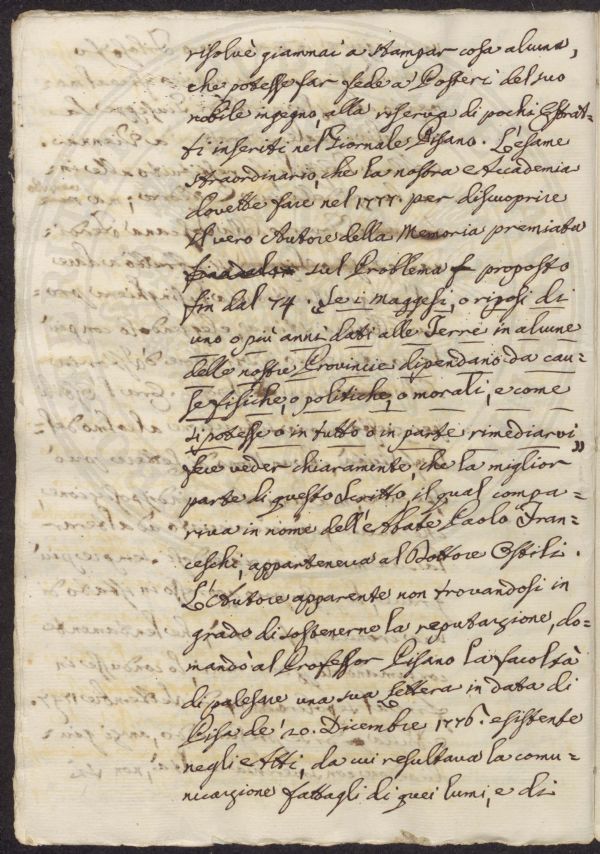 risolvè giammai a stampar cosa alcuna,
che potesse far fede a' Posteri del suo
nobile ingegno, alla riserva di pochi Estrat-
ti inseriti nel Giornale Pisano. L'esame
straordinario, che la nostra Accademia
dovette fare nel 1777. per discuoprire
il vero Autore della Memoria premiata
sul Problema proposto
fin dal 74. "Se i maggesi, o riposi di
uno o più anni dati alle Terre in alcune
delle nostre Provincie dipendano da cau-
se fisiche, o politiche, o morali, e come
si potesse o in tutto o in parte rimediarvi"
fece veder chiaramente, che la miglior
parte di questo Scritto, il qual compa-
riva in nome dell'Abate Paolo Fran-
ceschi, apparteneva al Dottore Ostili.
L'Autore apparente non trovandosi in
grado di sostenerne la reputazione, do-
mandò al Professor Pisano la facoltà
di palesare una sua Lettera in data di
Pisa de' 20. Dicembre 1776. esistente
negli Atti, da cui resultava la comu-
nicazione fattagli di quei lumi, e di